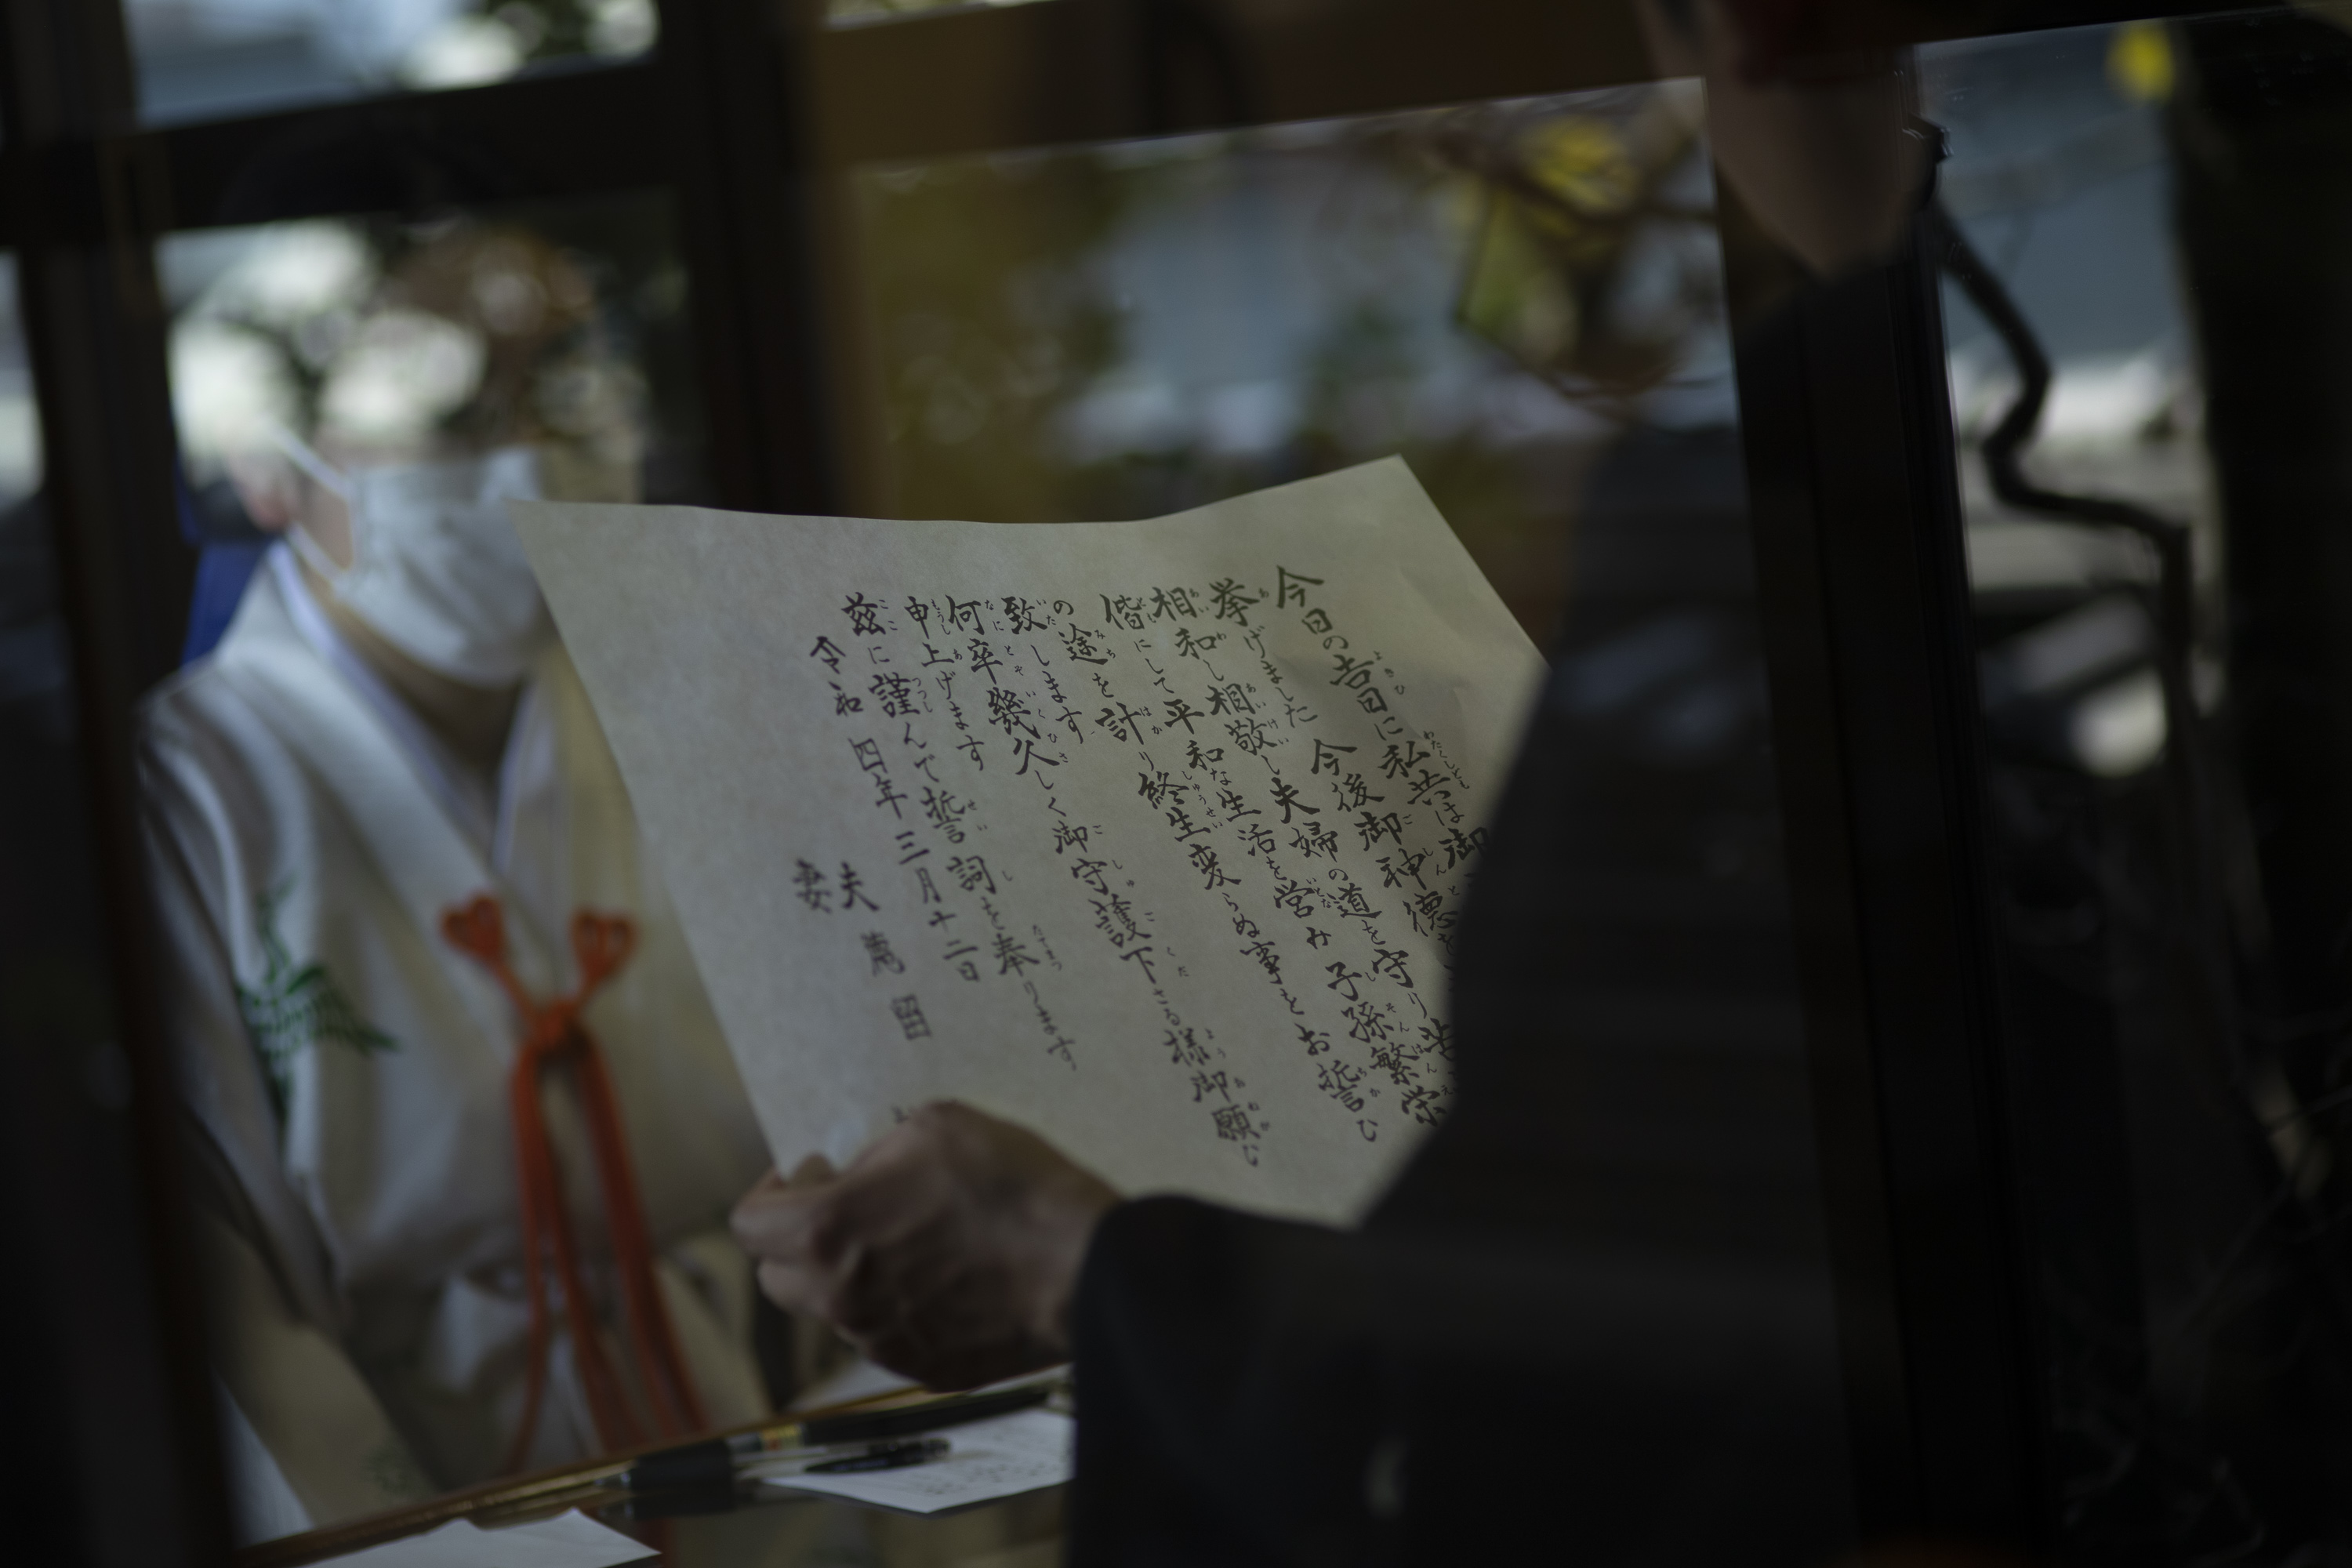 今日の吉日に私共は御
挙げました 今後御神徳を
相和し相敬し夫婦の道を守り
偕にして平和な生活を営み子孫繁栄
の途を計り終生変らぬ事をお誓ひ
致します
何卒幾久しく御守護下さる様御願ひ
申上げます
茲に謹んで誓詞を奉ります
令和四年三月十二日
夫
妻